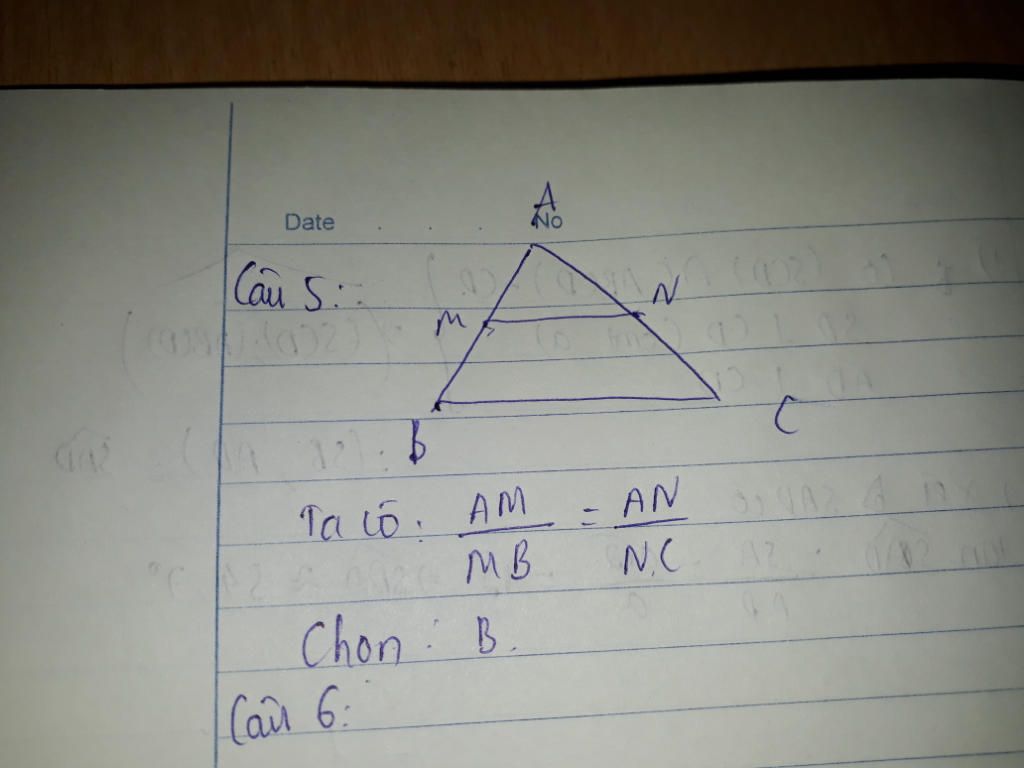 Date . . . No
A
Câu 5:
M N
B C
Ta có: AM / MB = AN / NC
Chọn: B.
Câu 6: